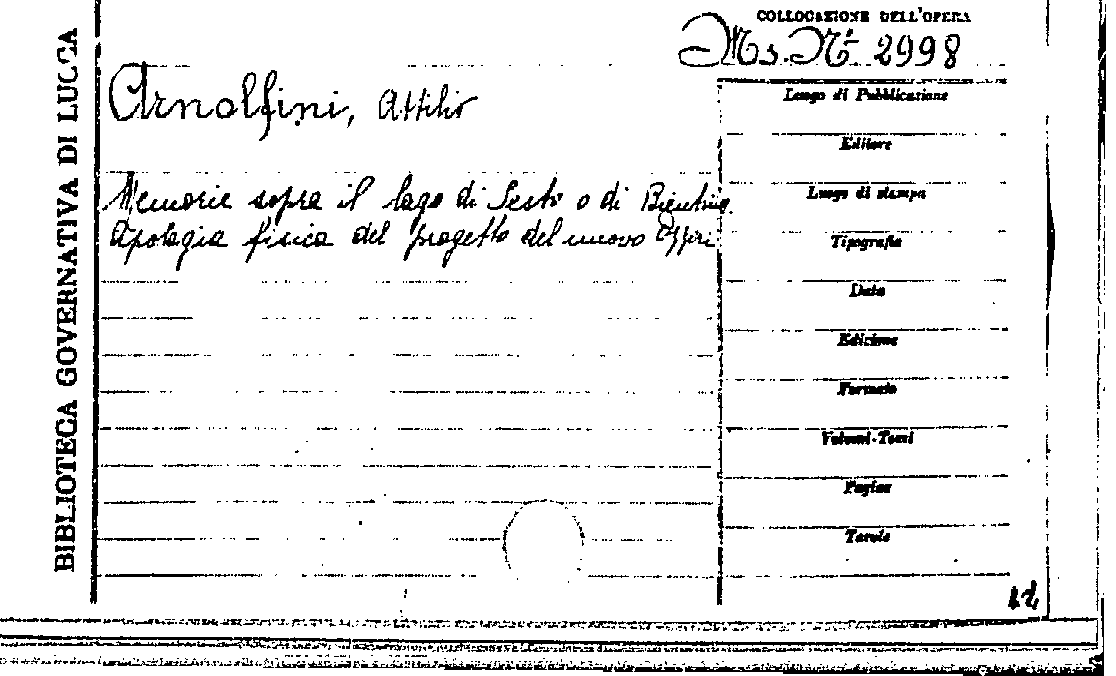 BIBLIOTECA GOVERNATIVA DI LUCCA
COLLOCAZIONE DELL'OPERA
Ms. N° 2998
Arnolfini, Attilio
Memorie sopra il lago di Sesto o di Bientina.
Apologia fisica del progetto del nuovo Ozzeri
Luogo di Pubblicazione
Editore
Luogo di stampa
Tipografia
Data
Edizione
Formato
Volumi-Tomi
Pagine
Tavole